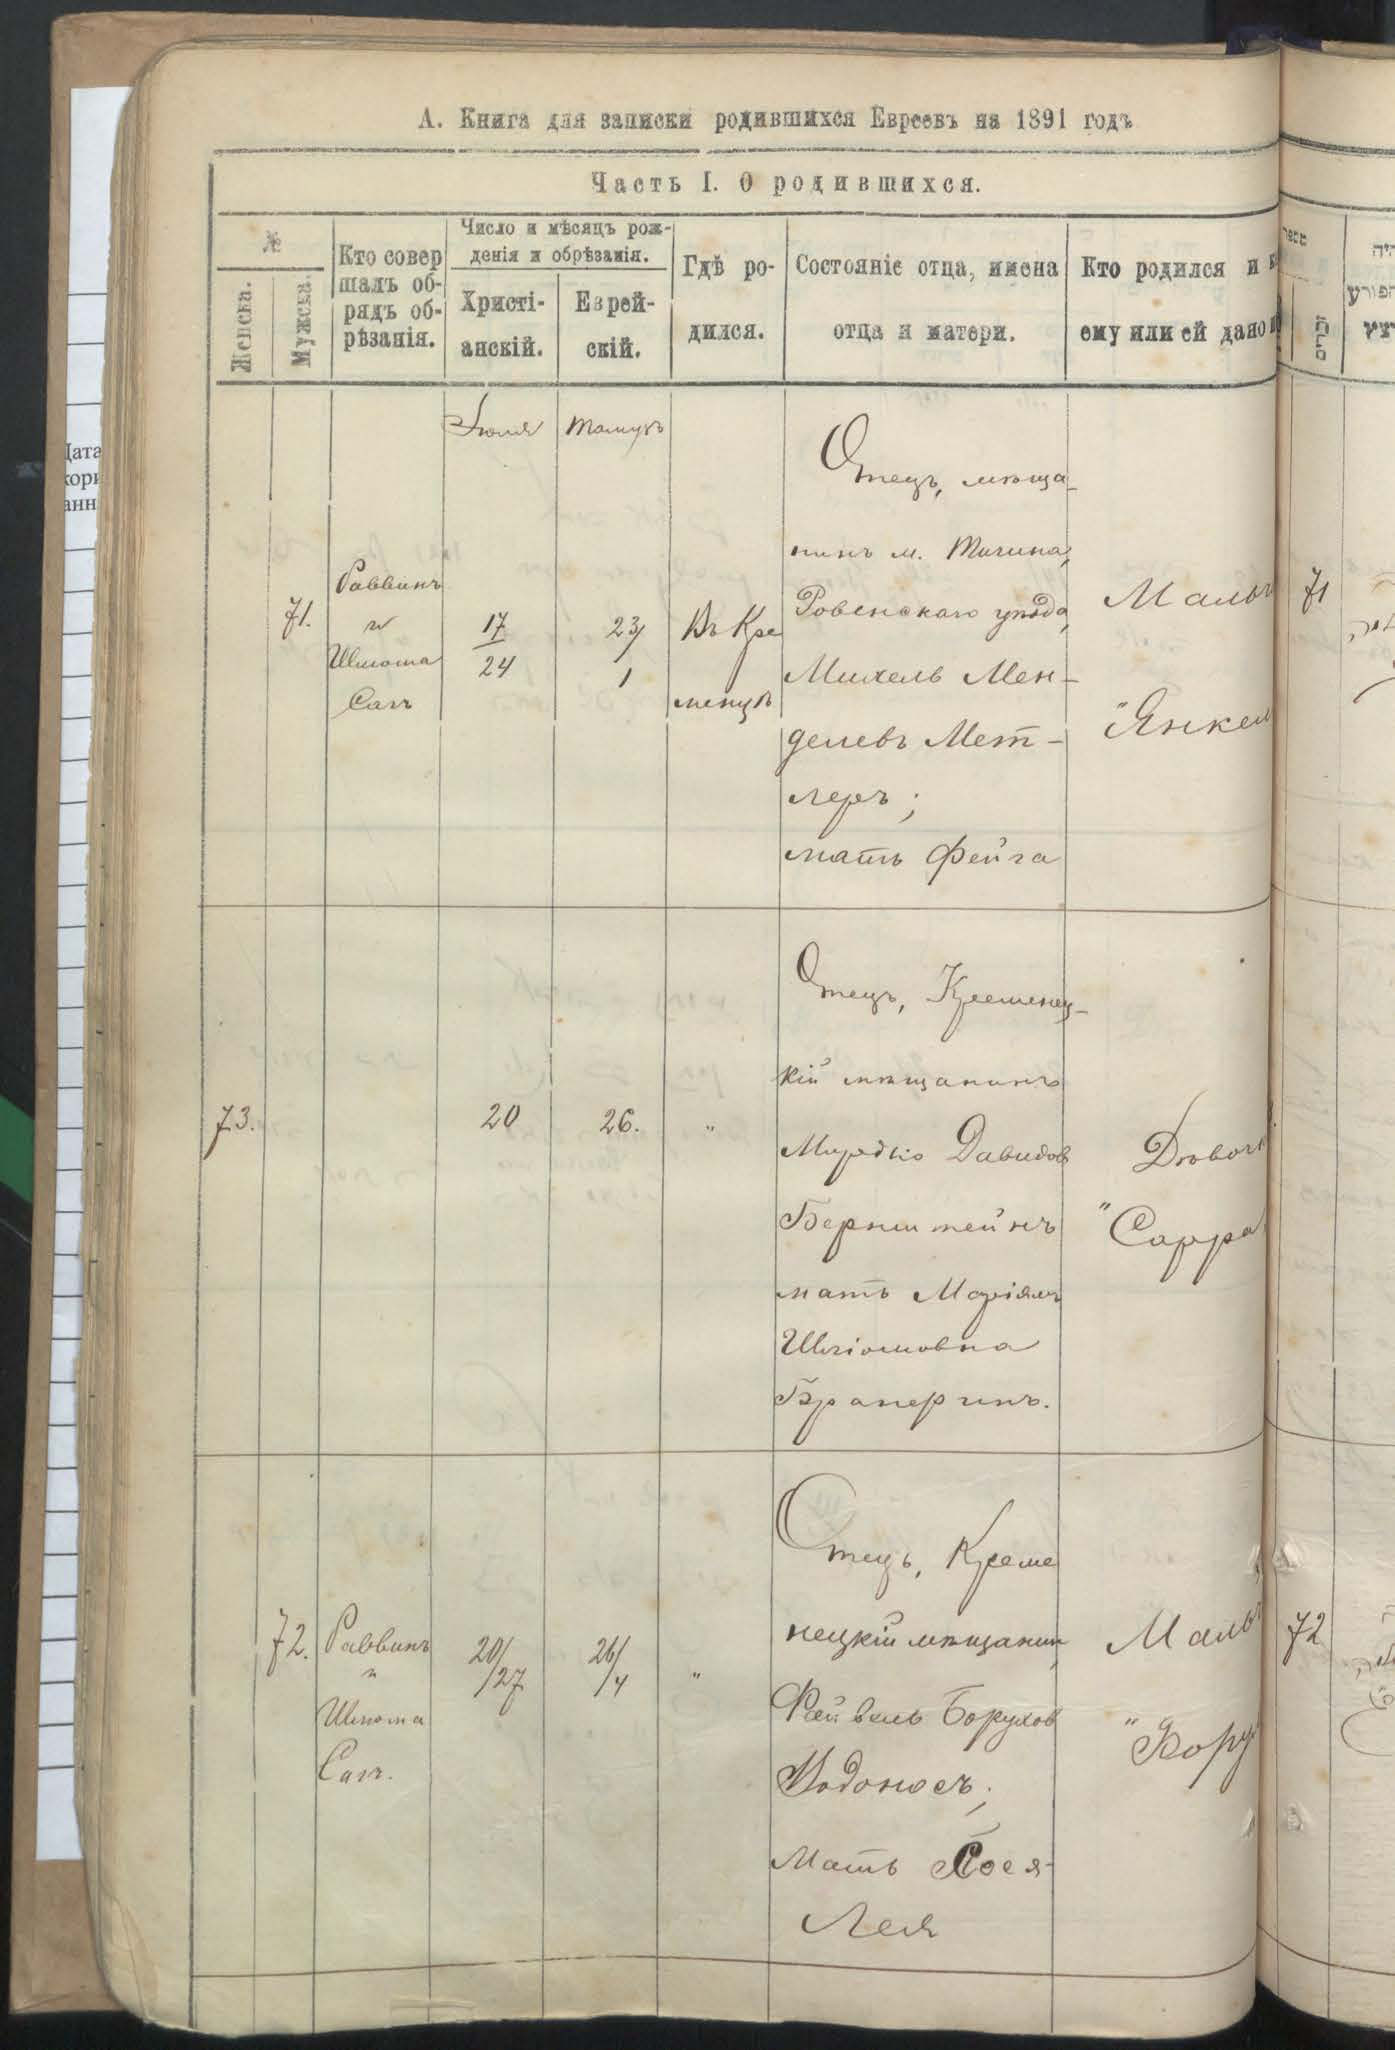 А. Книга для записки родившихся Евреевъ на 1891 годъ
Часть I. О родившихся.
№
Женска.
Мужска.
Кто совер
шалъ об-
рядъ об-
рѣзанія.
Число и мѣсяцъ рож-
денія и обрѣзанія.
Христі-
анскій.
Еврей-
скій.
Гдѣ ро-
дился.
Состояніе отца, имена
отца и матери.
Кто родился и
ему или ей дано
Іюля
Тамузъ
71.
Раввинъ
и
Шлома
Сагъ
17
24
23/
1
Въ Кре
менцѣ
Отецъ, мѣща-
нинъ м. Тучина,
Ровенскаго уѣзда,
Михель Мен-
делевъ Мет-
леръ;
мать Фейга
Мальч
"Янкел
71
73.
20
26.
"
Отецъ, Кременец-
кій мѣщанинъ
Давидов
Бернштейнъ
мать Маріямъ
Шліомовна
Дѣвочк
"Сарра
72.
Раввинъ
и
Шлома
Сагъ.
20/
/27
26/
/4
"
Отецъ, Креме
нецкій мѣщанин,
Фейвель Борухов
Водоносъ;
Мать
Лея
Маль
"Бору
72